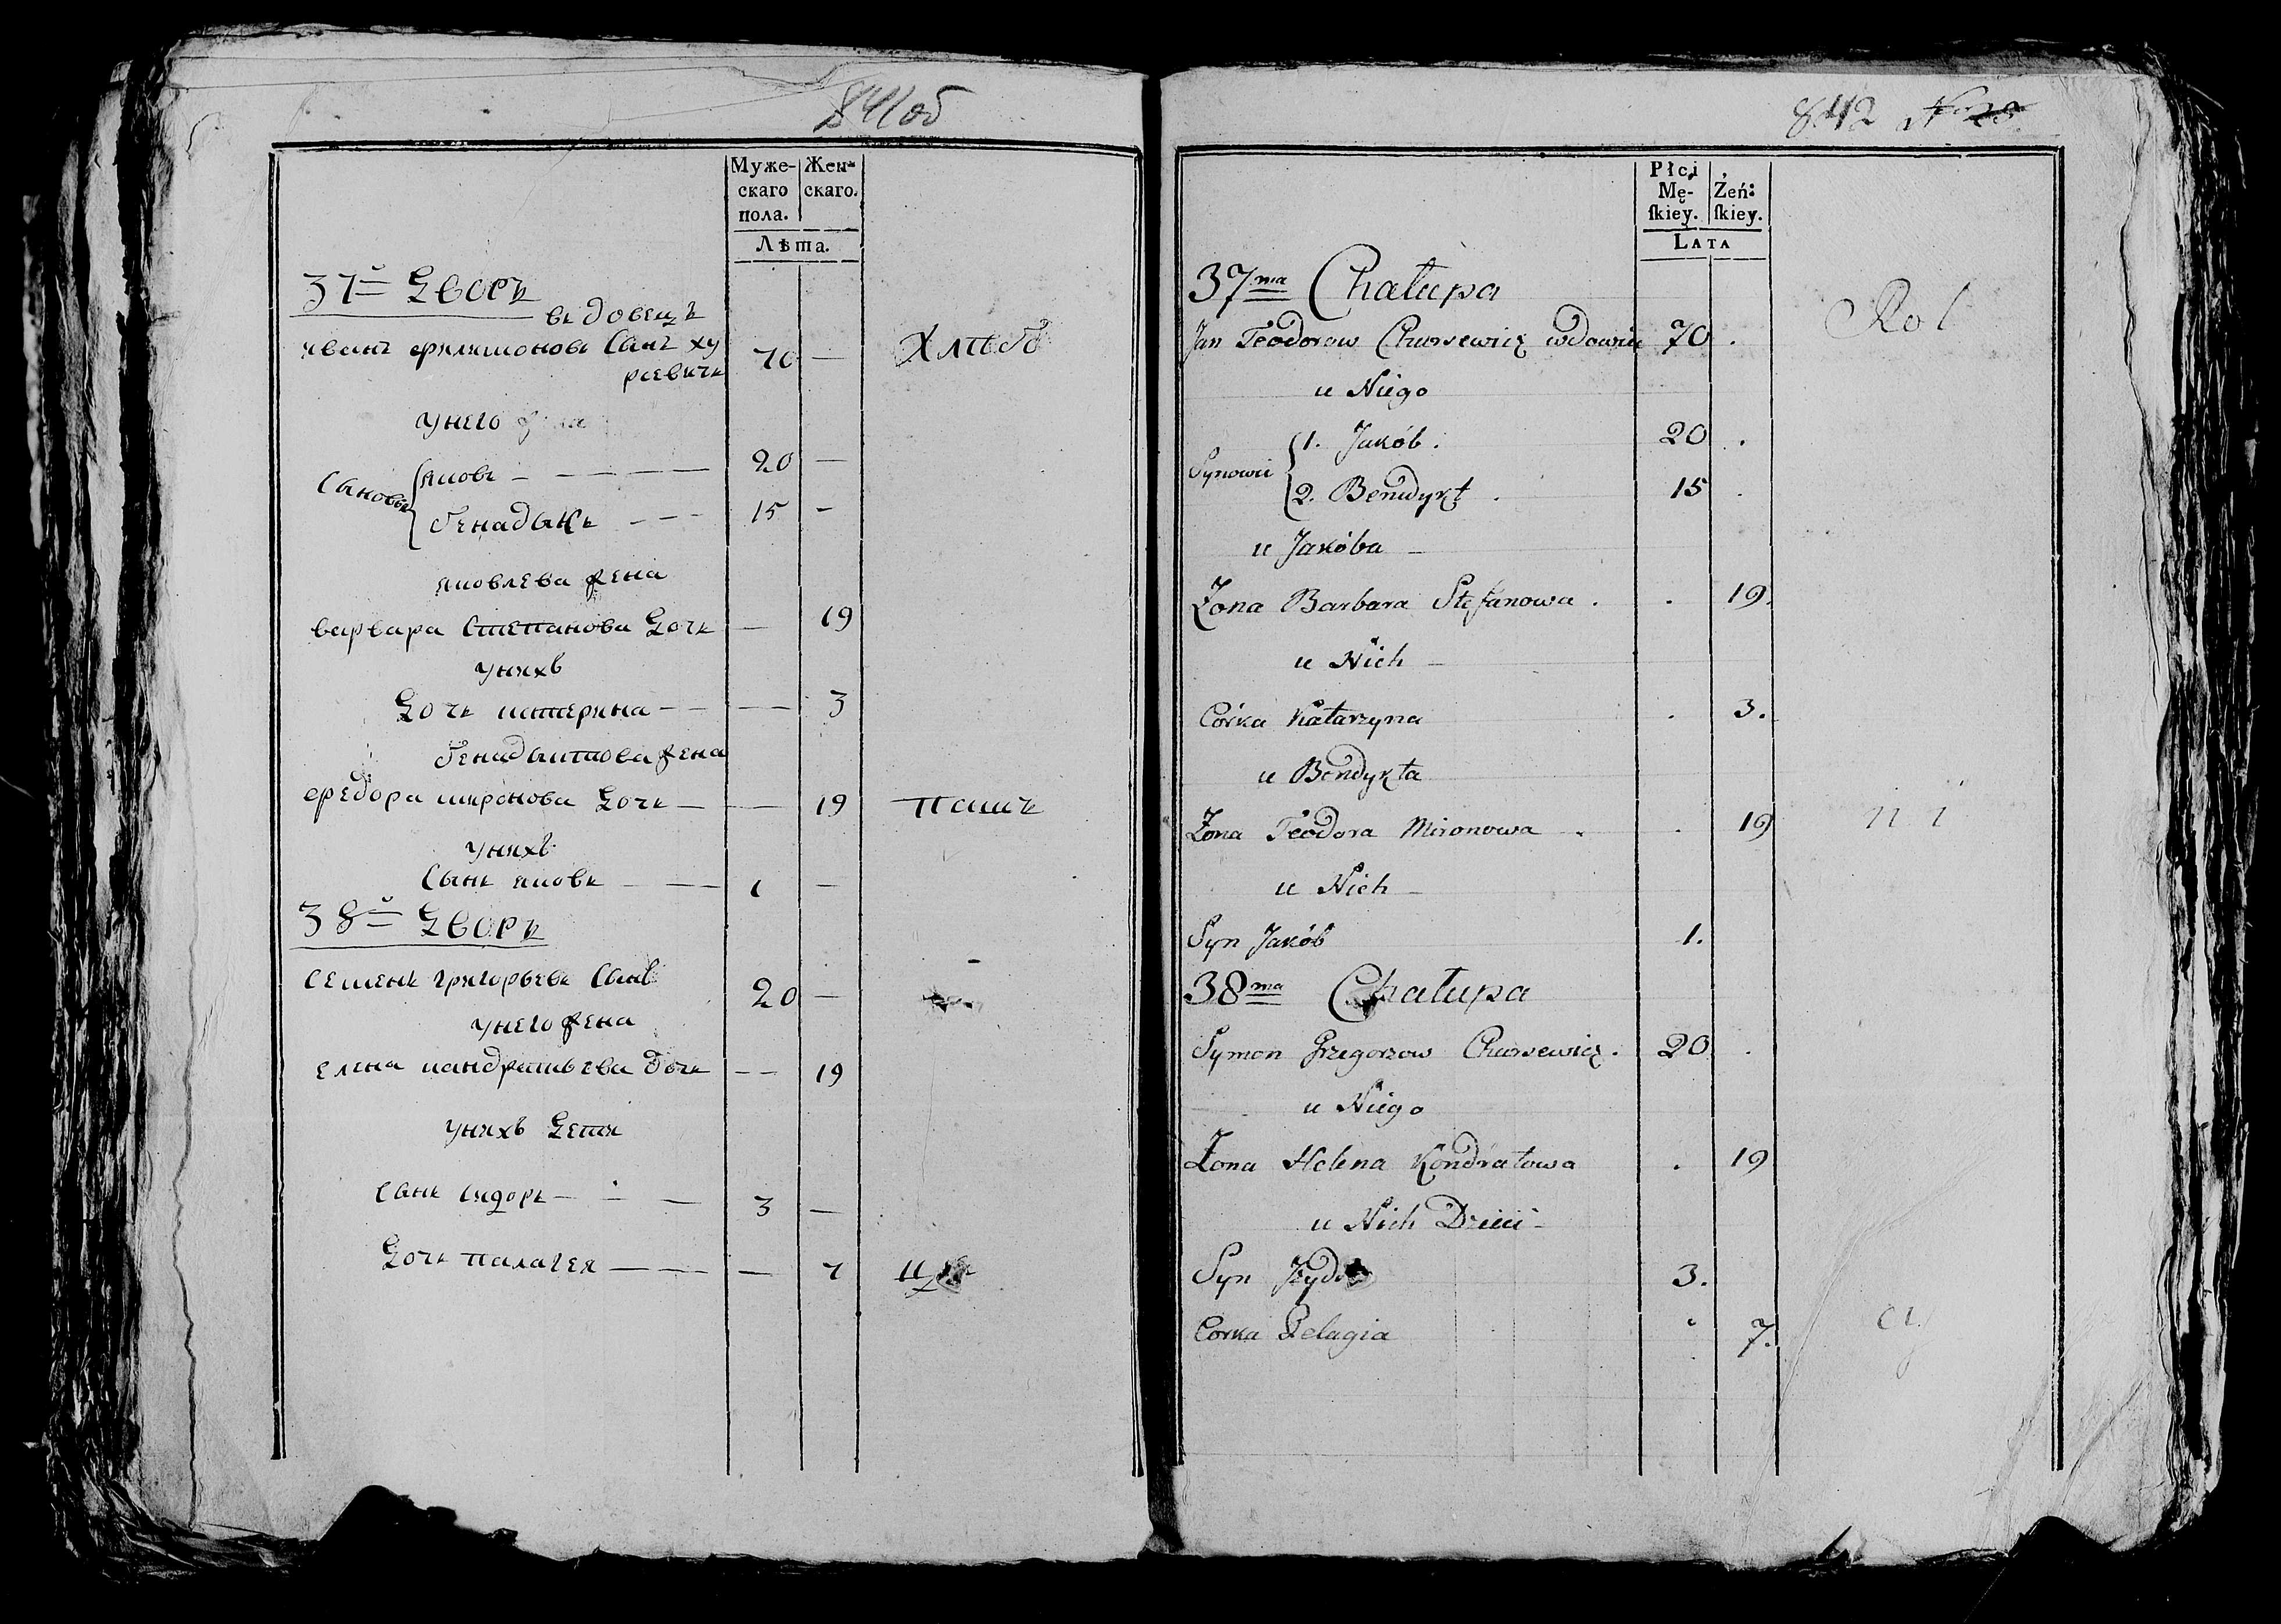 841об
Муже-
скаго
пола.
Жен-
скаго.
Лѣта.
37й Дворъ
вдовецъ
Иванъ Филимоновъ Сынъ ху
рсевичъ 70 — Хлѣбо
унего
Сыновья
Яковъ — — — — 20 —
Бенадыкъ — — — 15 —
Яковлева жена
варвара Степанова Дочь — 19
унихъ
Дочь катерина — — — — 3
Бенадыктова жена
Федора миронова Дочь — — 19 пашъ
унихъ
Сынъ яковъ — — — 1 —
38й Дворъ
Семенъ григорьевъ Сынъ 20 —
унего жена
елена кандратьева дочь — — 19
унихъ Дети
Сынъ сидоръ — — — 3 —
Дочь палагея — — — — 7
842
Płci
Mę-
ſkiey.
Żeń:
ſkiey.
LATA
37ma Chałupa
Jan Teodorow Chursewicz wdowiec 70 . Rol
u Niego
Synowie
1. Jakób. 20 .
2. Benedykt . 15 .
u Jakóba —
Żona Barbara Stefanowa . . 19.
u Nich —
Córka Katarzyna . 3.
u Bendykta
Żona Teodora Mironowa . . 19 ni
u Nich —
Syn Jakób 1.
38ma Chałupa
Symon Grzegorzow Chursewicz. 20 .
u Niego
Żona Helena Kondratowa . 19
u Nich Dzieci -
Syn 3.
Corka Pelagia . 7. cy